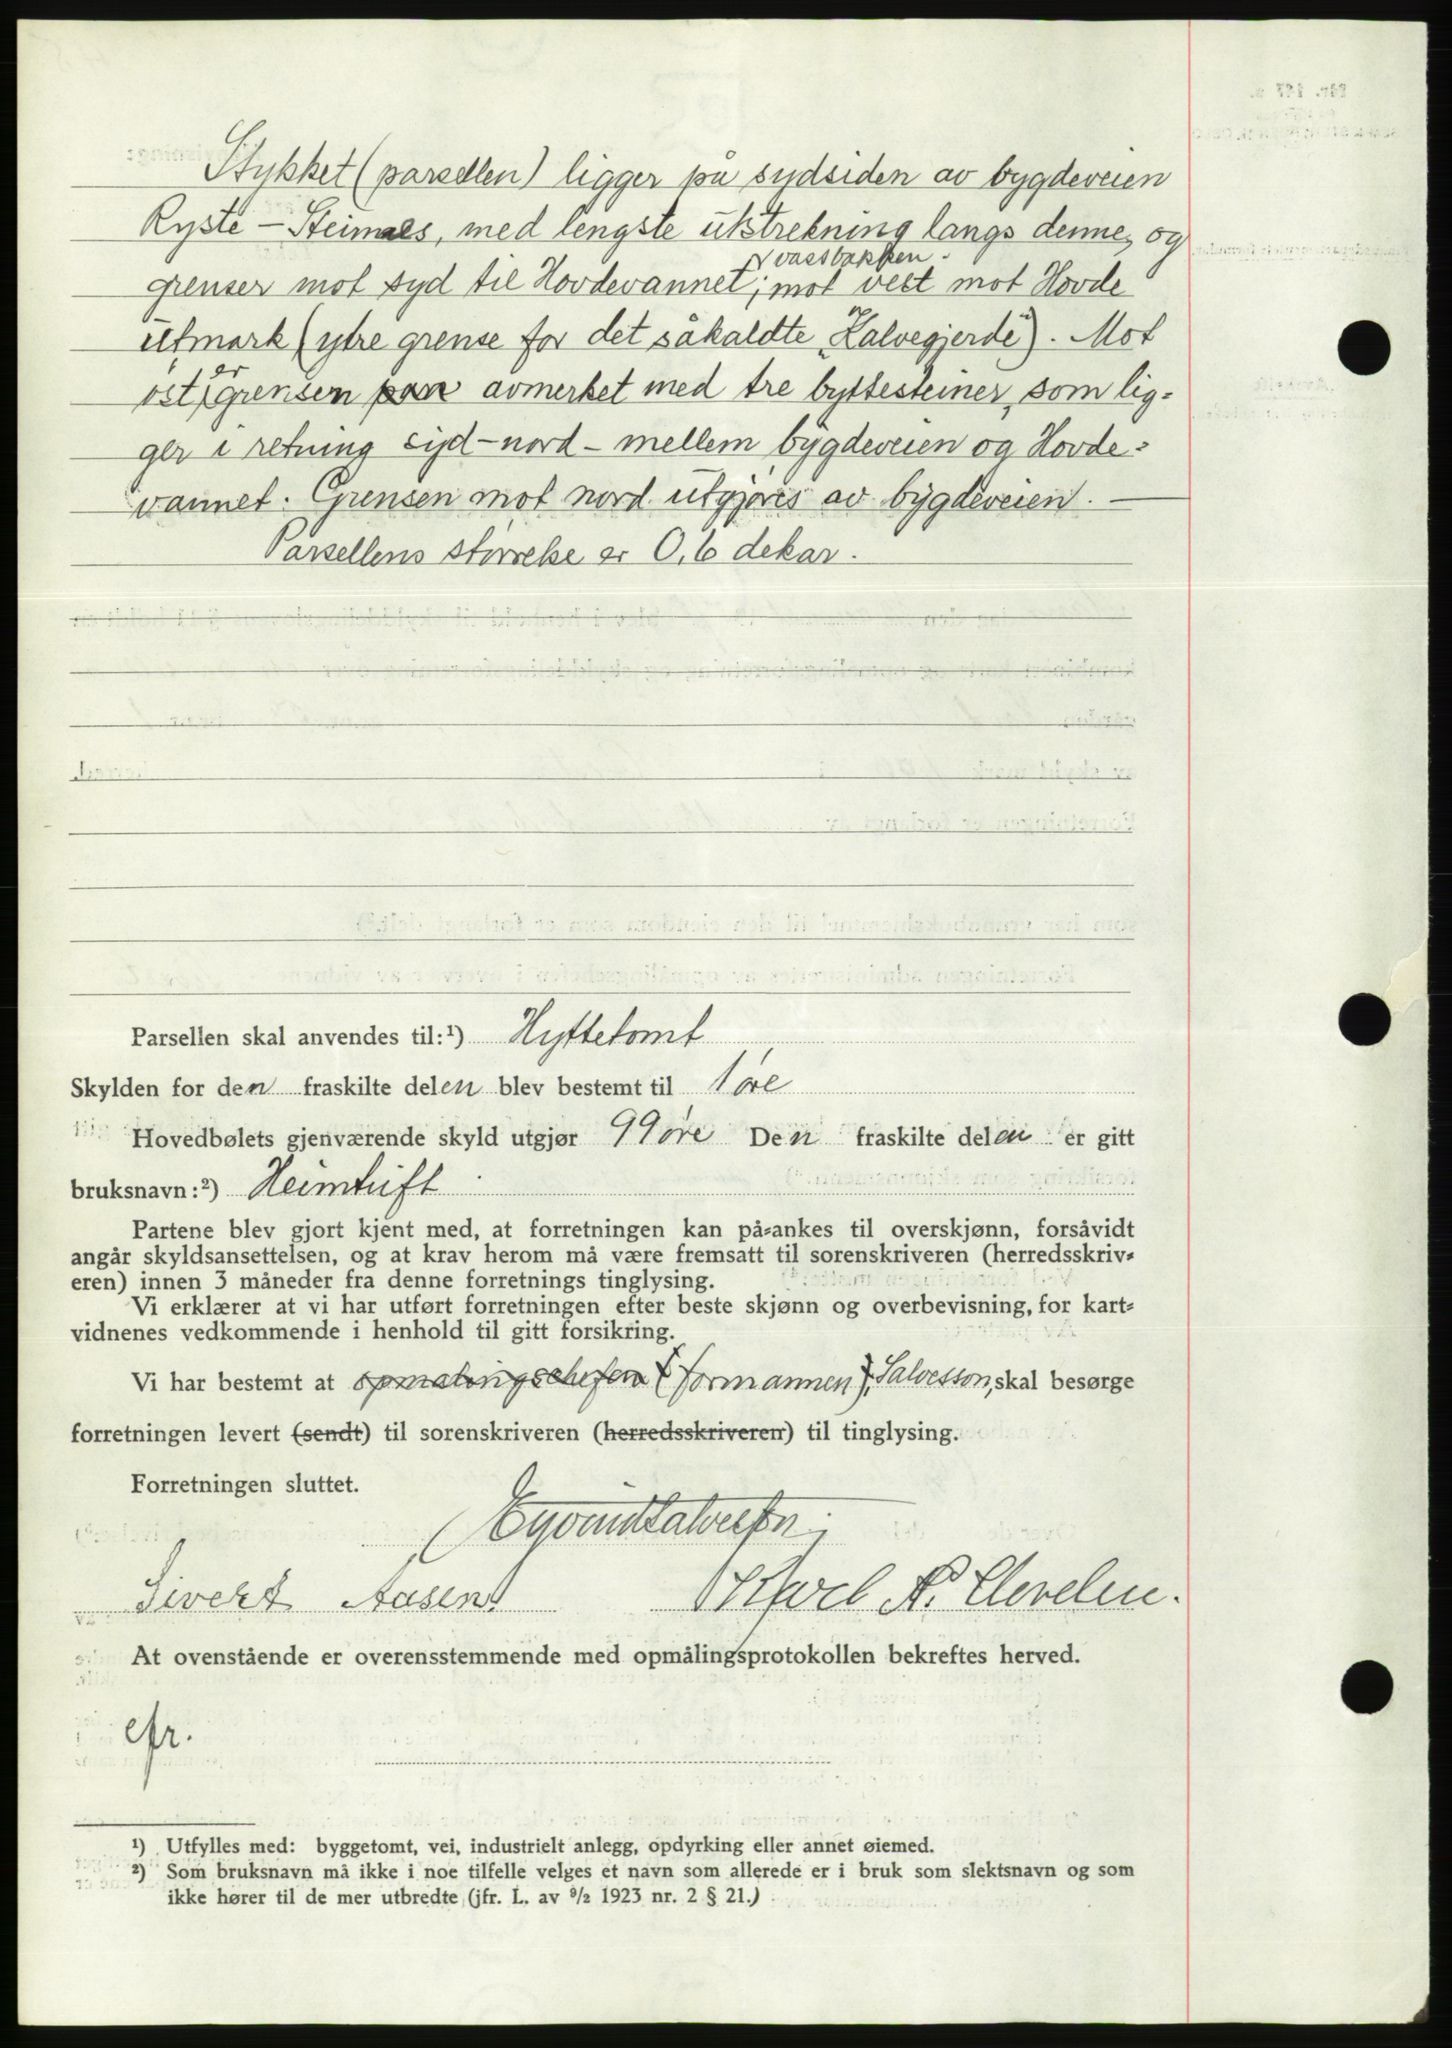 Stykket (parsellen) ligger på sydsiden av bygdeveien
Ryste – Steimnes, med lengste utstrekning langs denne, og
vassbakken
grenser mot syd til Hovdevannet, mot vest mot Hovde
utmark (ytre grense for det såkaldte „Kalvegjerde“). Mot
øst er grensen avmerket med tre byttesteiner, som lig-
ger i retning syd-nord - mellem bygdeveien og Hovde-
vannet. Grensen mot nord utgjøres av bygdeveien.
Parsellens størrelse er 0,6 dekar.
Parsellen skal anvendes til:¹) Hyttetomt
Skylden for den fraskilte delen blev bestemt til 1 øre
Hovedbølets gjenværende skyld utgjør 99 øre Den fraskilte delen er gitt
bruksnavn:²) Heimtuft
Partene blev gjort kjent med, at forretningen kan på-ankes til overskjønn, forsåvidt
angår skyldsansettelsen, og at krav herom må være fremsatt til sorenskriveren (herredsskriv-
eren) innen 3 måneder fra denne forretnings tinglysing.
Vi erklærer at vi har utført forretningen efter beste skjønn og overbevisning, for kart-
vidnenes vedkommende i henhold til gitt forsikring.
Vi har bestemt at opmålingschefen (formannen), Salvesson, skal besørge
forretningen levert (sendt) til sorenskriveren (herredsskriveren) til tinglysing.
Forretningen sluttet.
Eyvind Salvesson.
Sivert Aasen Karl A. Klovelen.
At ovenstående er overensstemmende med opmålingsprotokollen bekreftes herved.
efr.
¹) Utfylles med: byggetomt, vei, industrielt anlegg, opdyrking eller annet øiemed.
²) Som bruksnavn må ikke i noe tilfelle velges et navn som allerede er i bruk som slektsnavn og som
ikke hører til de mer utbredte (jfr. L. av ⁹/₂ 1923 nr. 2 § 21.)